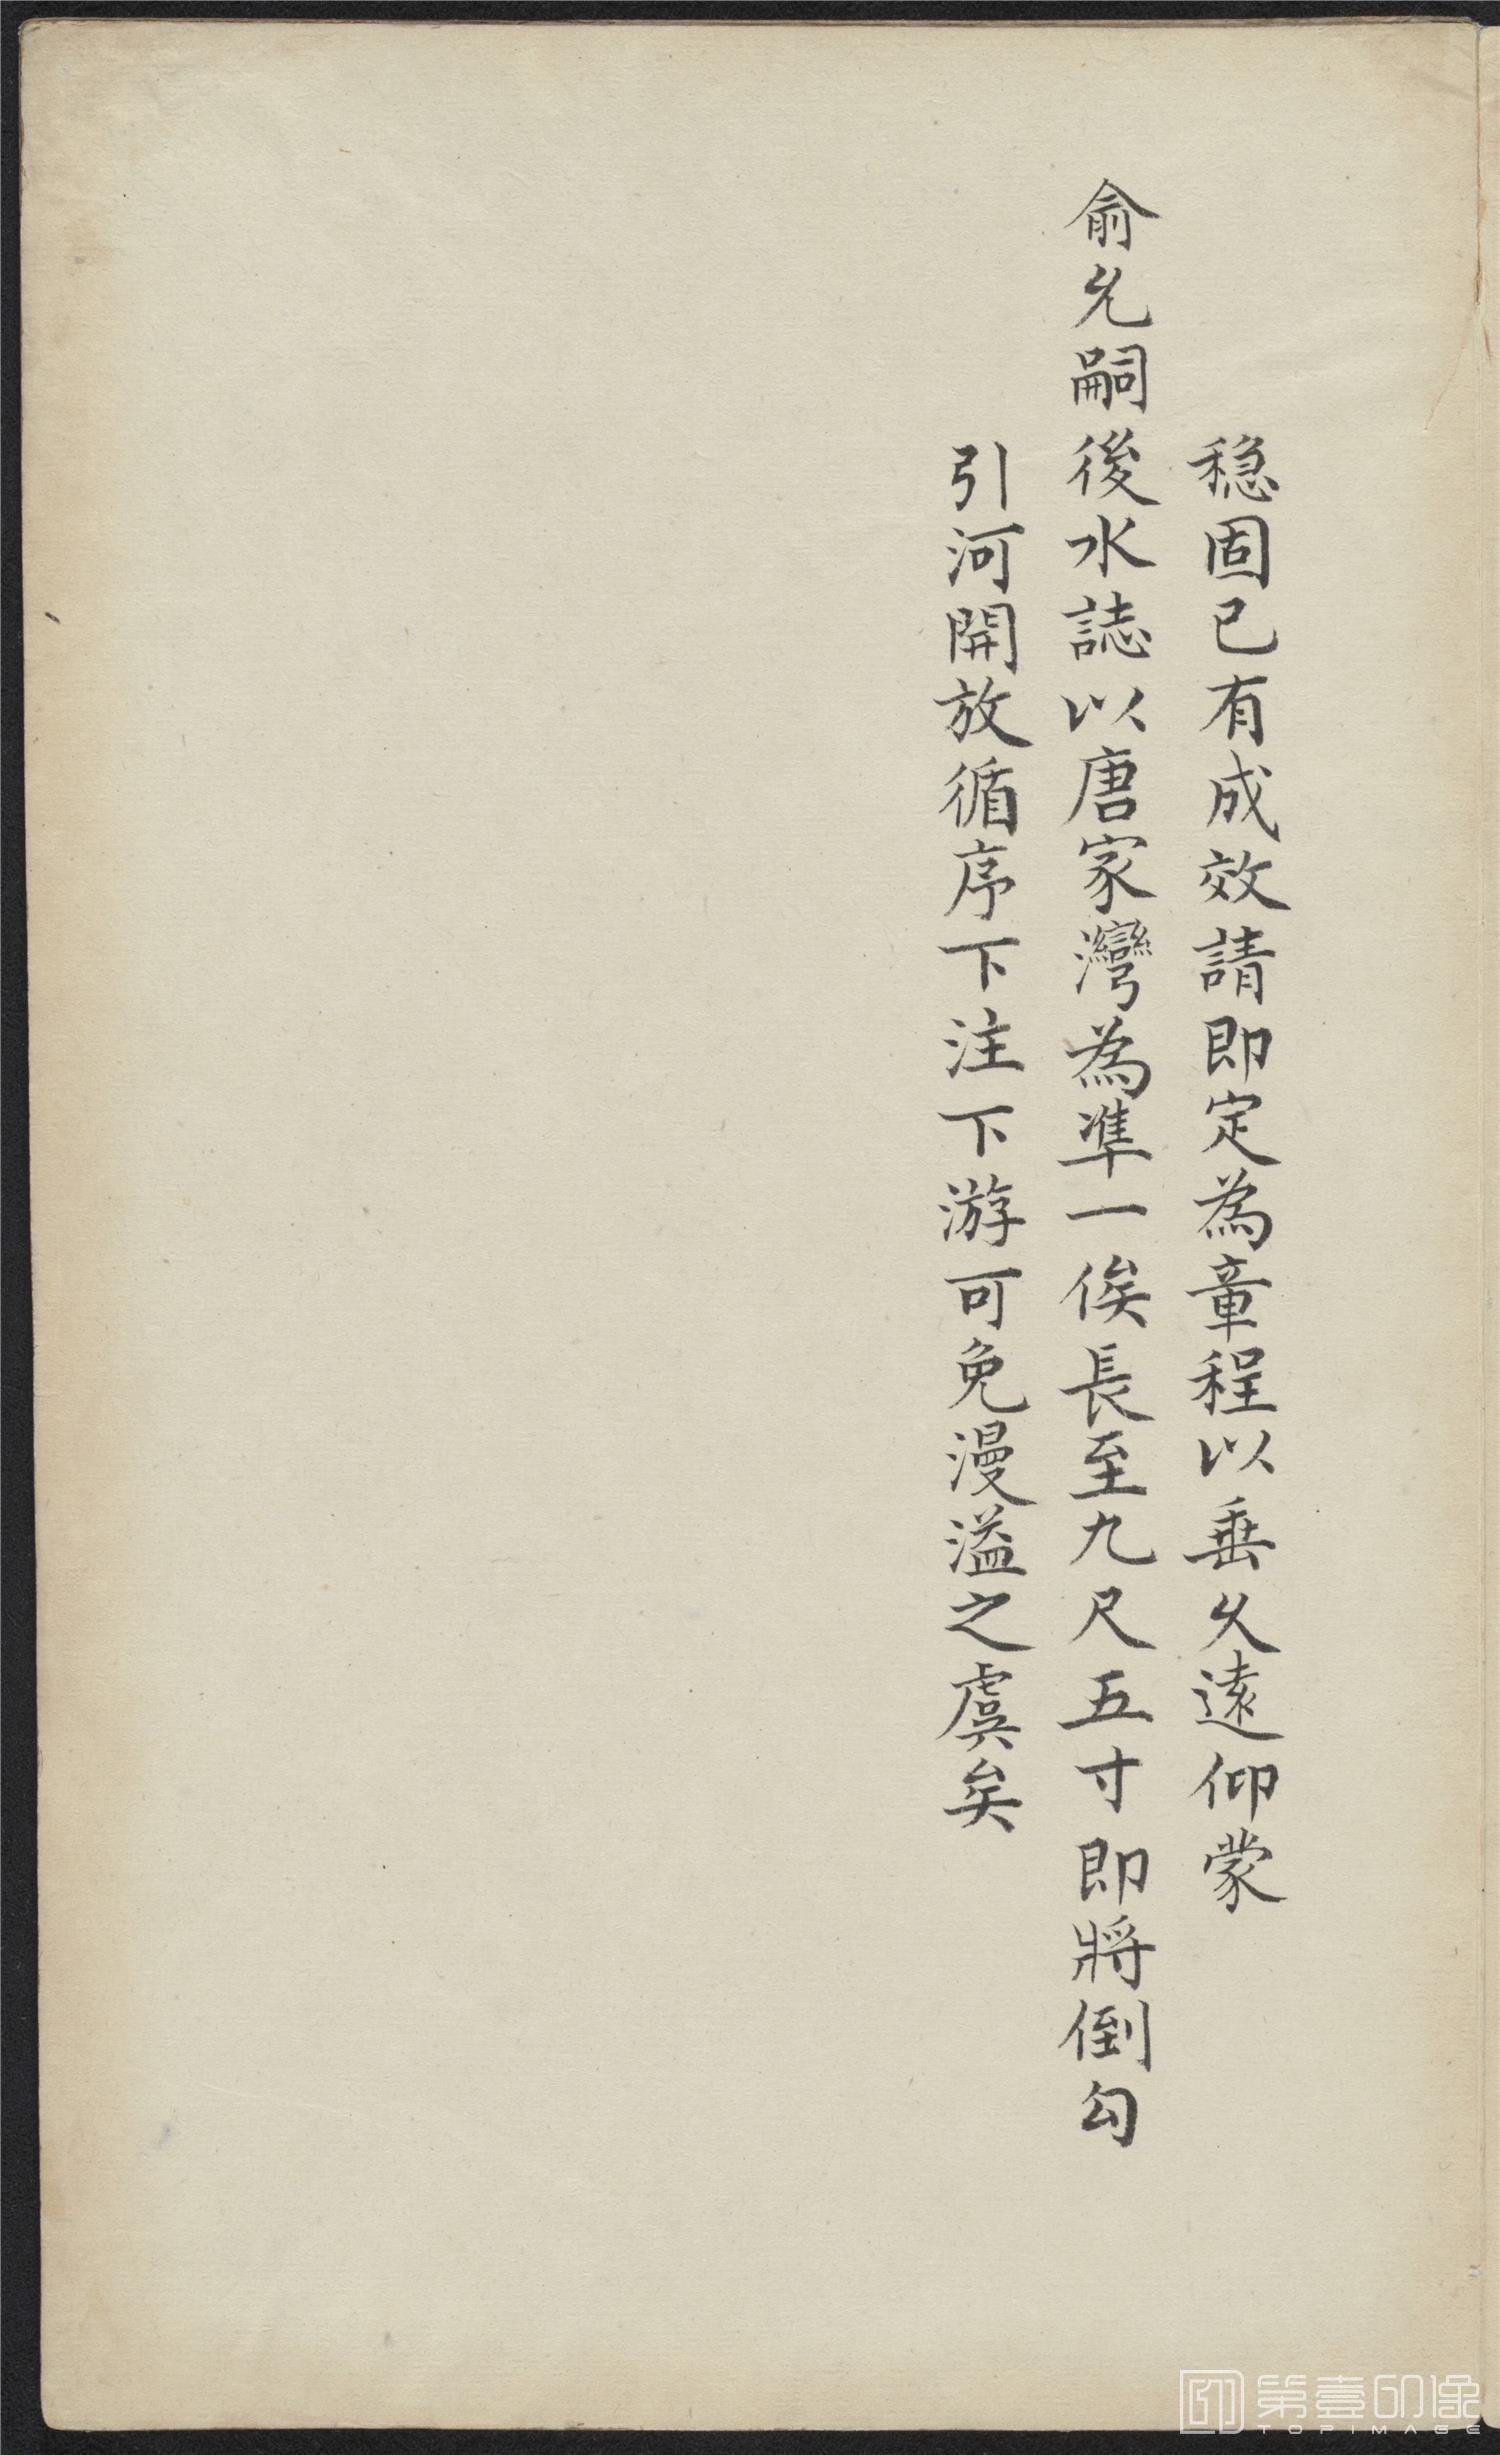 穏固已有成效請即定為章程以垂久遠仰蒙
俞允嗣後水誌以唐家灣為準一俟長至九尺五寸即將倒勾
引河開放循序下注下游可免漫溢之虞矣
第壹印像
TOPIMAGE